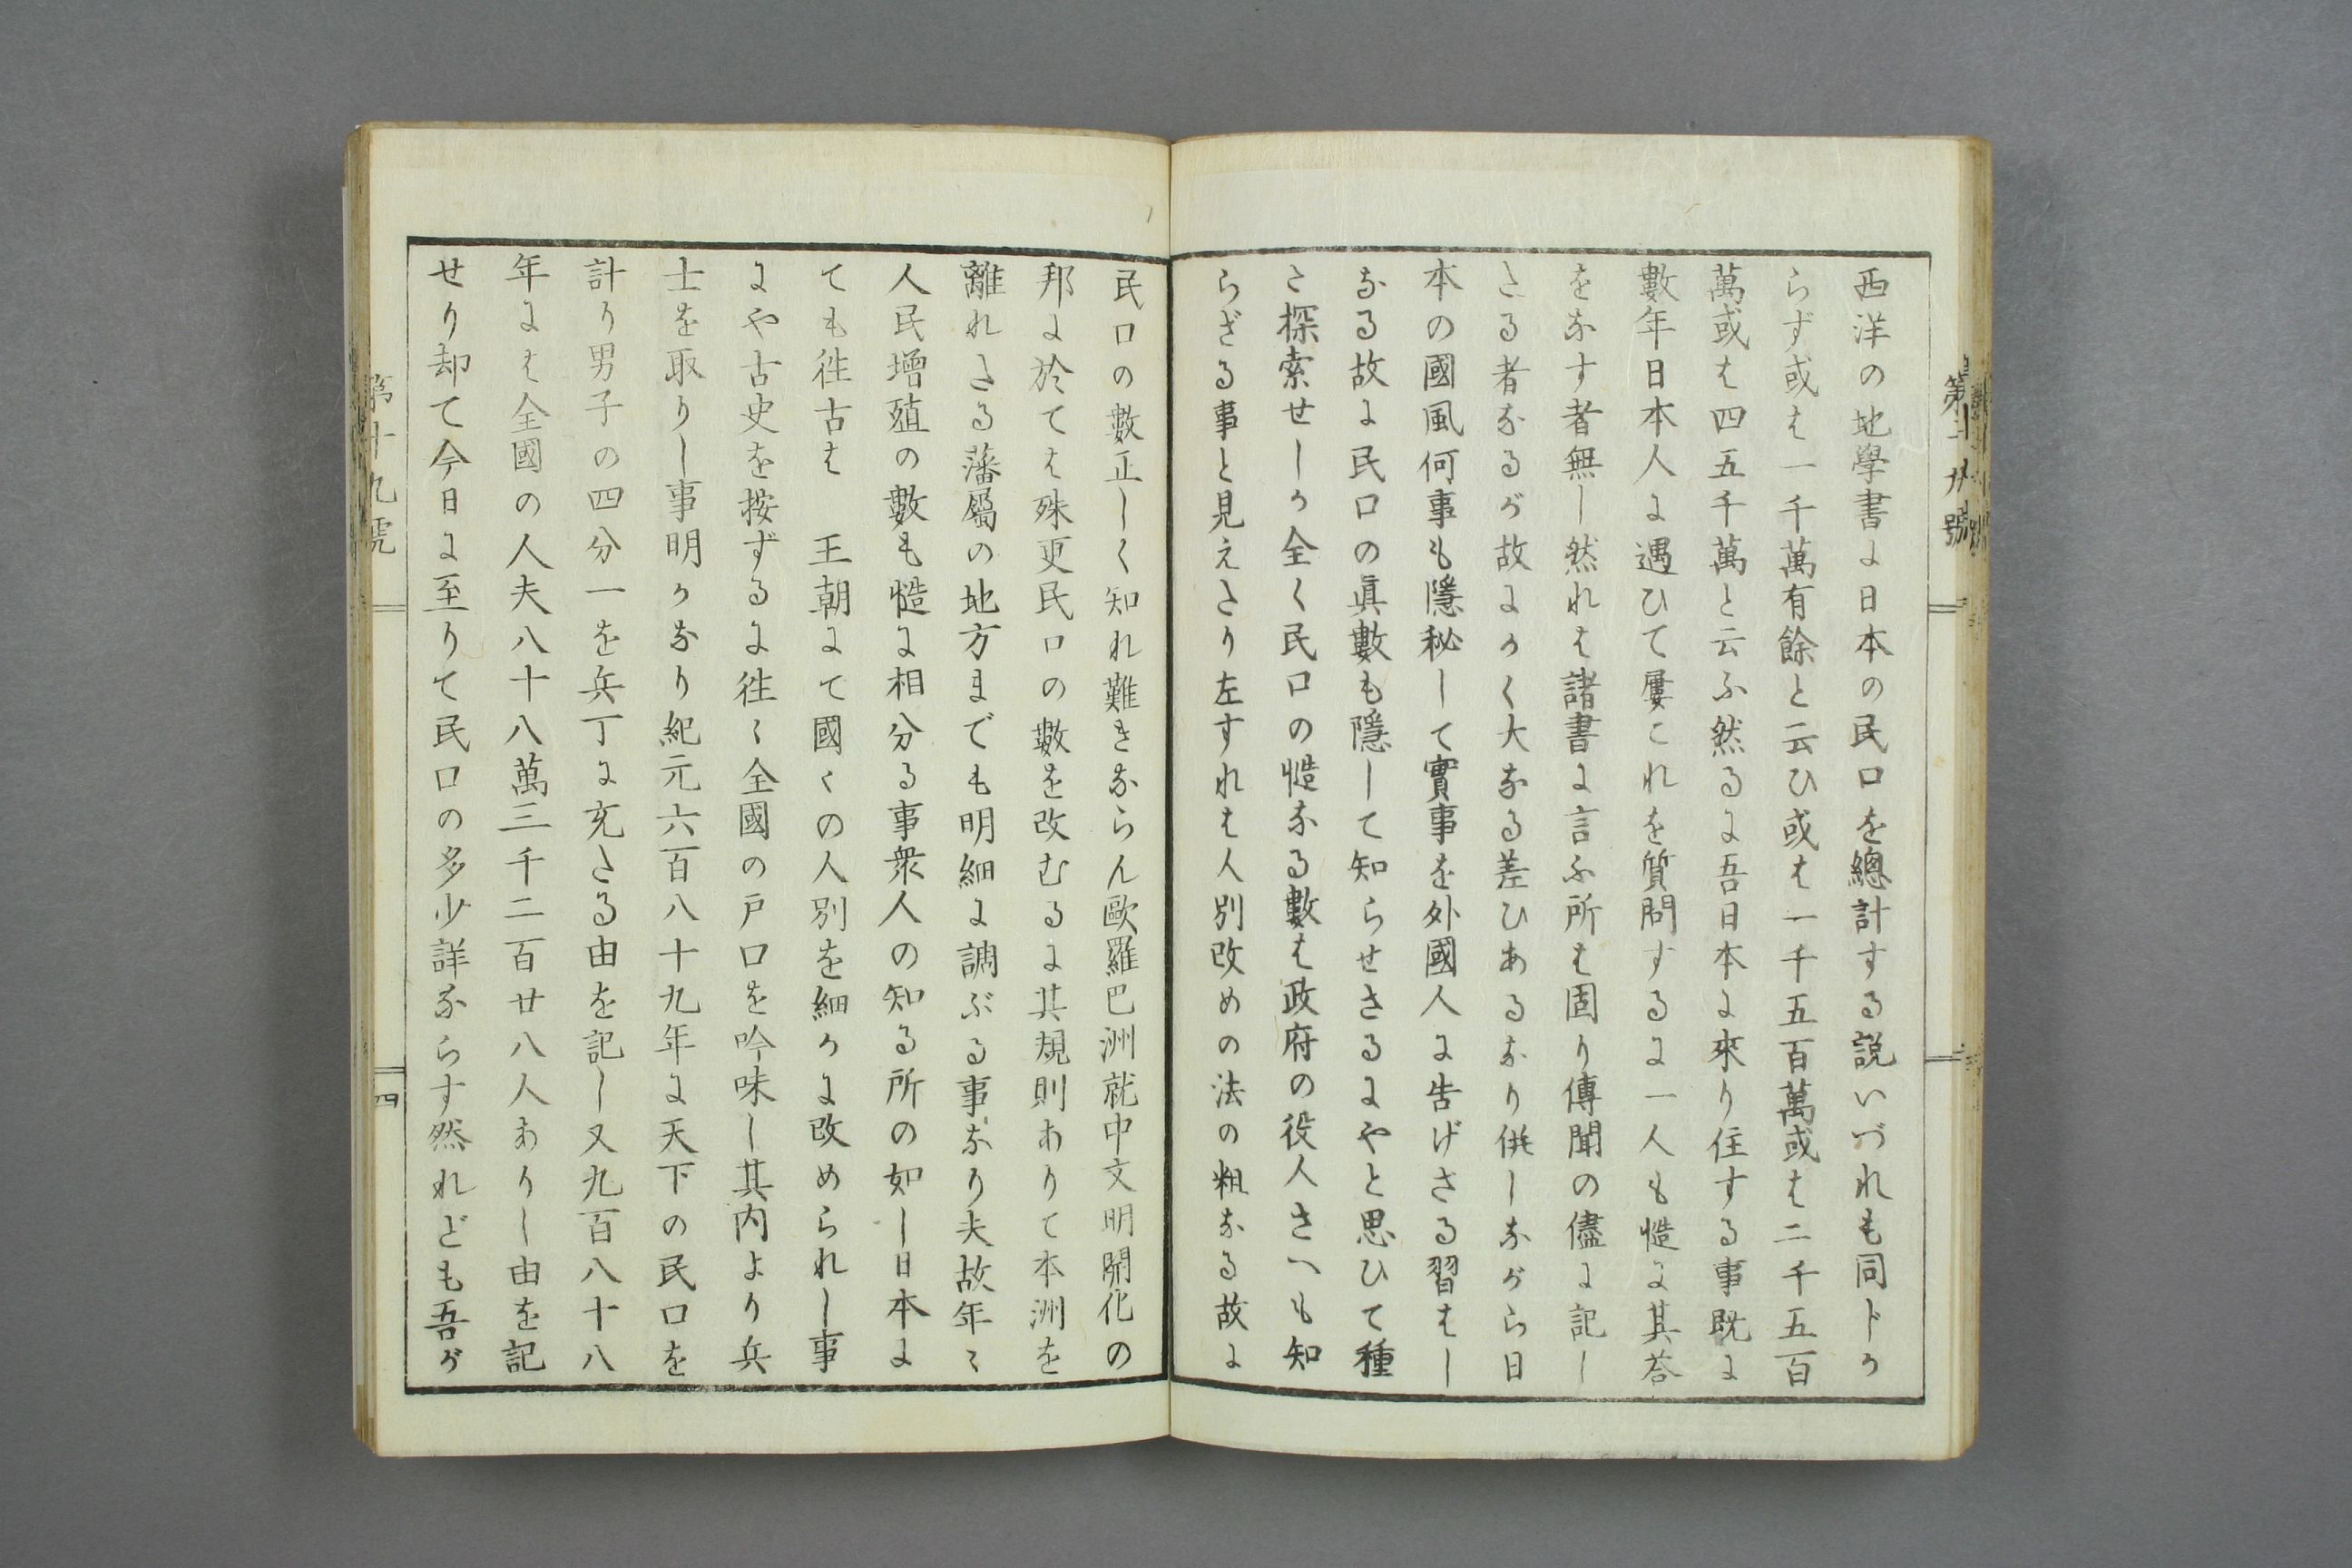 西洋の地學書に日本の民口を總計する説いづれも同ドか
らず或は一千萬有餘と云ひ或は一千五百萬或は二千五百
萬或は四五千萬と云ふ然るに吾日本に來り住する事既に
數年日本人に遇ひて屢これを質問するに一人も慥に其荅
をなす者無し然れは諸書に言ふ所は固り傳聞の儘に記し
たる者なるが故にかく大なる差ひあるなり併しながら日
本の國風何事も隱秘して實事を外國人に告げさる習はし
なる故に民口の眞數も隱して知らせさるにやと思ひて種
さ探索せしか全く民口の慥なる數は政府の役人さへも知
らざる事と見えたり左すれは人別改めの法の粗なる故に
民口の數正しく知れ難きならん歐羅巴洲就中文明開化の
邦に於ては殊更民口の數を改むるに其規則ありて本洲を
離れたる藩屬の地方までも明細に調ぶる事なり夫故年〻
人民増殖の數も慥に相分る事衆人の知る所の如し日本に
ても徃古は　王朝にて國〱の人別を細かに改められし事
にや古史を按ずるに徃〻全國の戸口を吟味し其内より兵
士を取りし事明かなり紀元六百八十九年に天下の民口を
計り男子の四分一を兵丁に充たる由を記し又九百八十八
年には全國の人夫八十八萬三千二百廿八人ありし由を記
せり却て今日に至りて民口の多少詳ならす然れども吾が
第十九號
四